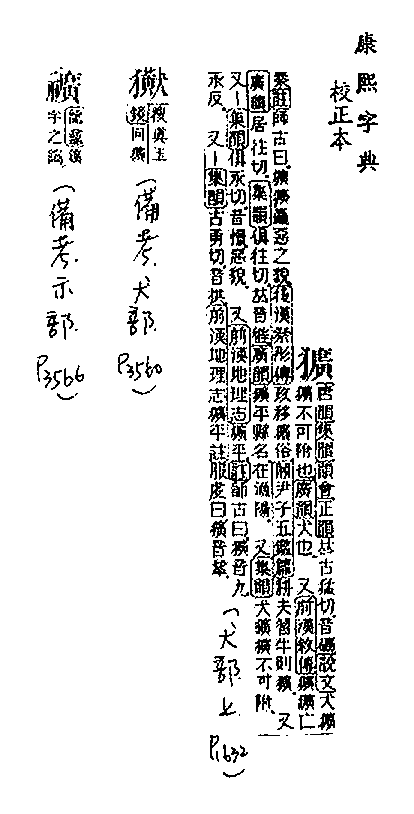 康熙字典
校正本
獷 唐韻集韻韻會正韻𠀤古猛切音礦說文犬獷
獷不可附也廣韻犬也 又前漢敘傳獷獷亡
秦註師古曰獷獷麤惡之貌後漢祭肜傳政移獷俗關尹子五鑑篇耕夫習牛則獷 又
廣韻居往切集韻俱往切𠀤音廣韻獷平縣名在漁陽 又集韻犬獷獷不可附
又一集韻俱永切音憬惡貌 又前漢地理志獷平註師古曰獷音九
永反 又一集韻古勇切音拱前漢地理志獷平註服虔曰獷音鞏 （犬部上 P1632）
搜真玉
鏡同獷 （備考犬部 P3560）
龍龕獷
字之譌 （備考示部 P3566）